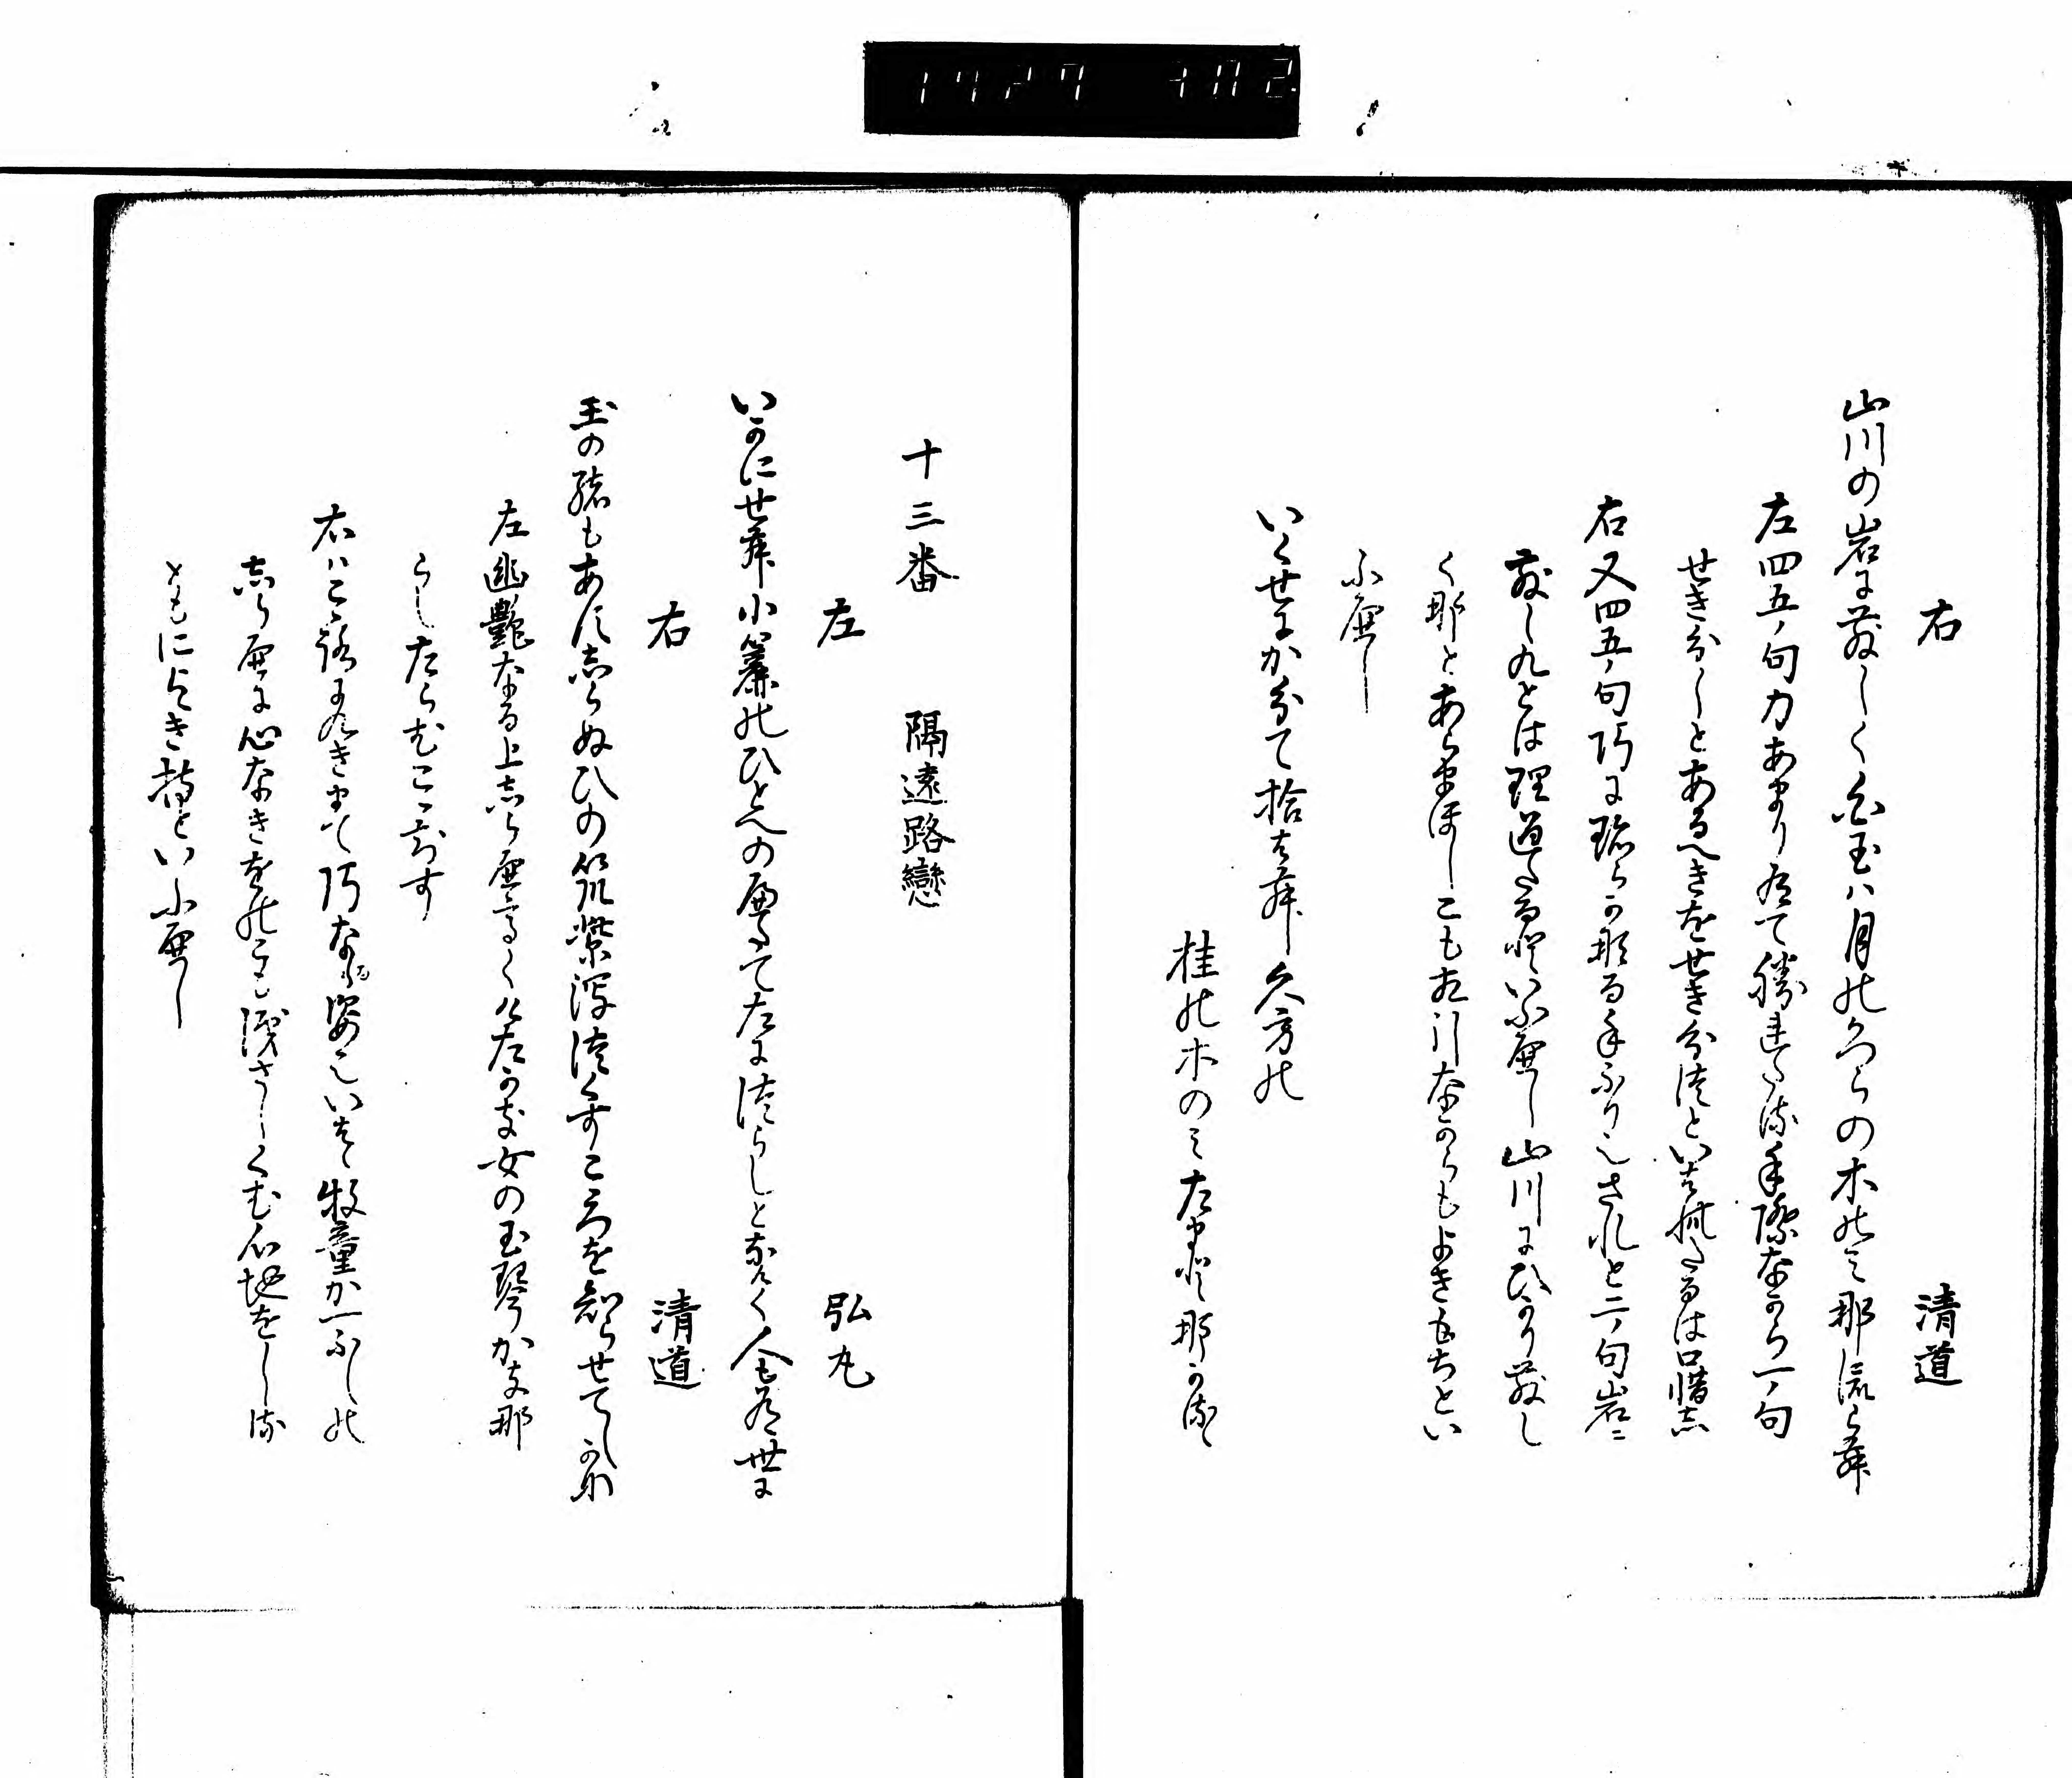 右　清道
山川の岩に散しく白玉ハ月のかつらの木のミ那流らむ
左四五ノ句力あまり有て勝れたる手際なから一ノ句
せき分しとあるへきをせき分注といはれたるは口惜し
右又四五ノ句巧に珍らかなる手ふり也されと二ノ句岩に
散し九とは理通たるといふへし山川にひかり散し
く那とあらまほしこも右引なからもよき毛ちとい
ふへし
いくせにか分て拾はむ久方の
桂の木のミ左まて那かる
十三番　隔遠路戀
左　弘丸
いかにせむ小簾のひとへの屁たて左に津らしとなく人も有世に
右　清道
玉の緒もあへすしらぬひの筑紫潟津くすこころを知らせてしかな
左幽艶なる上しらへ高く几左かき女の玉琴かき那
らしたらむここちす
右ハこころふかきまて巧なる姿にハいはて牧童か一ふしの
しらへに心なきをのこも涙さしくむ心地をしる
ともによき持といふへし